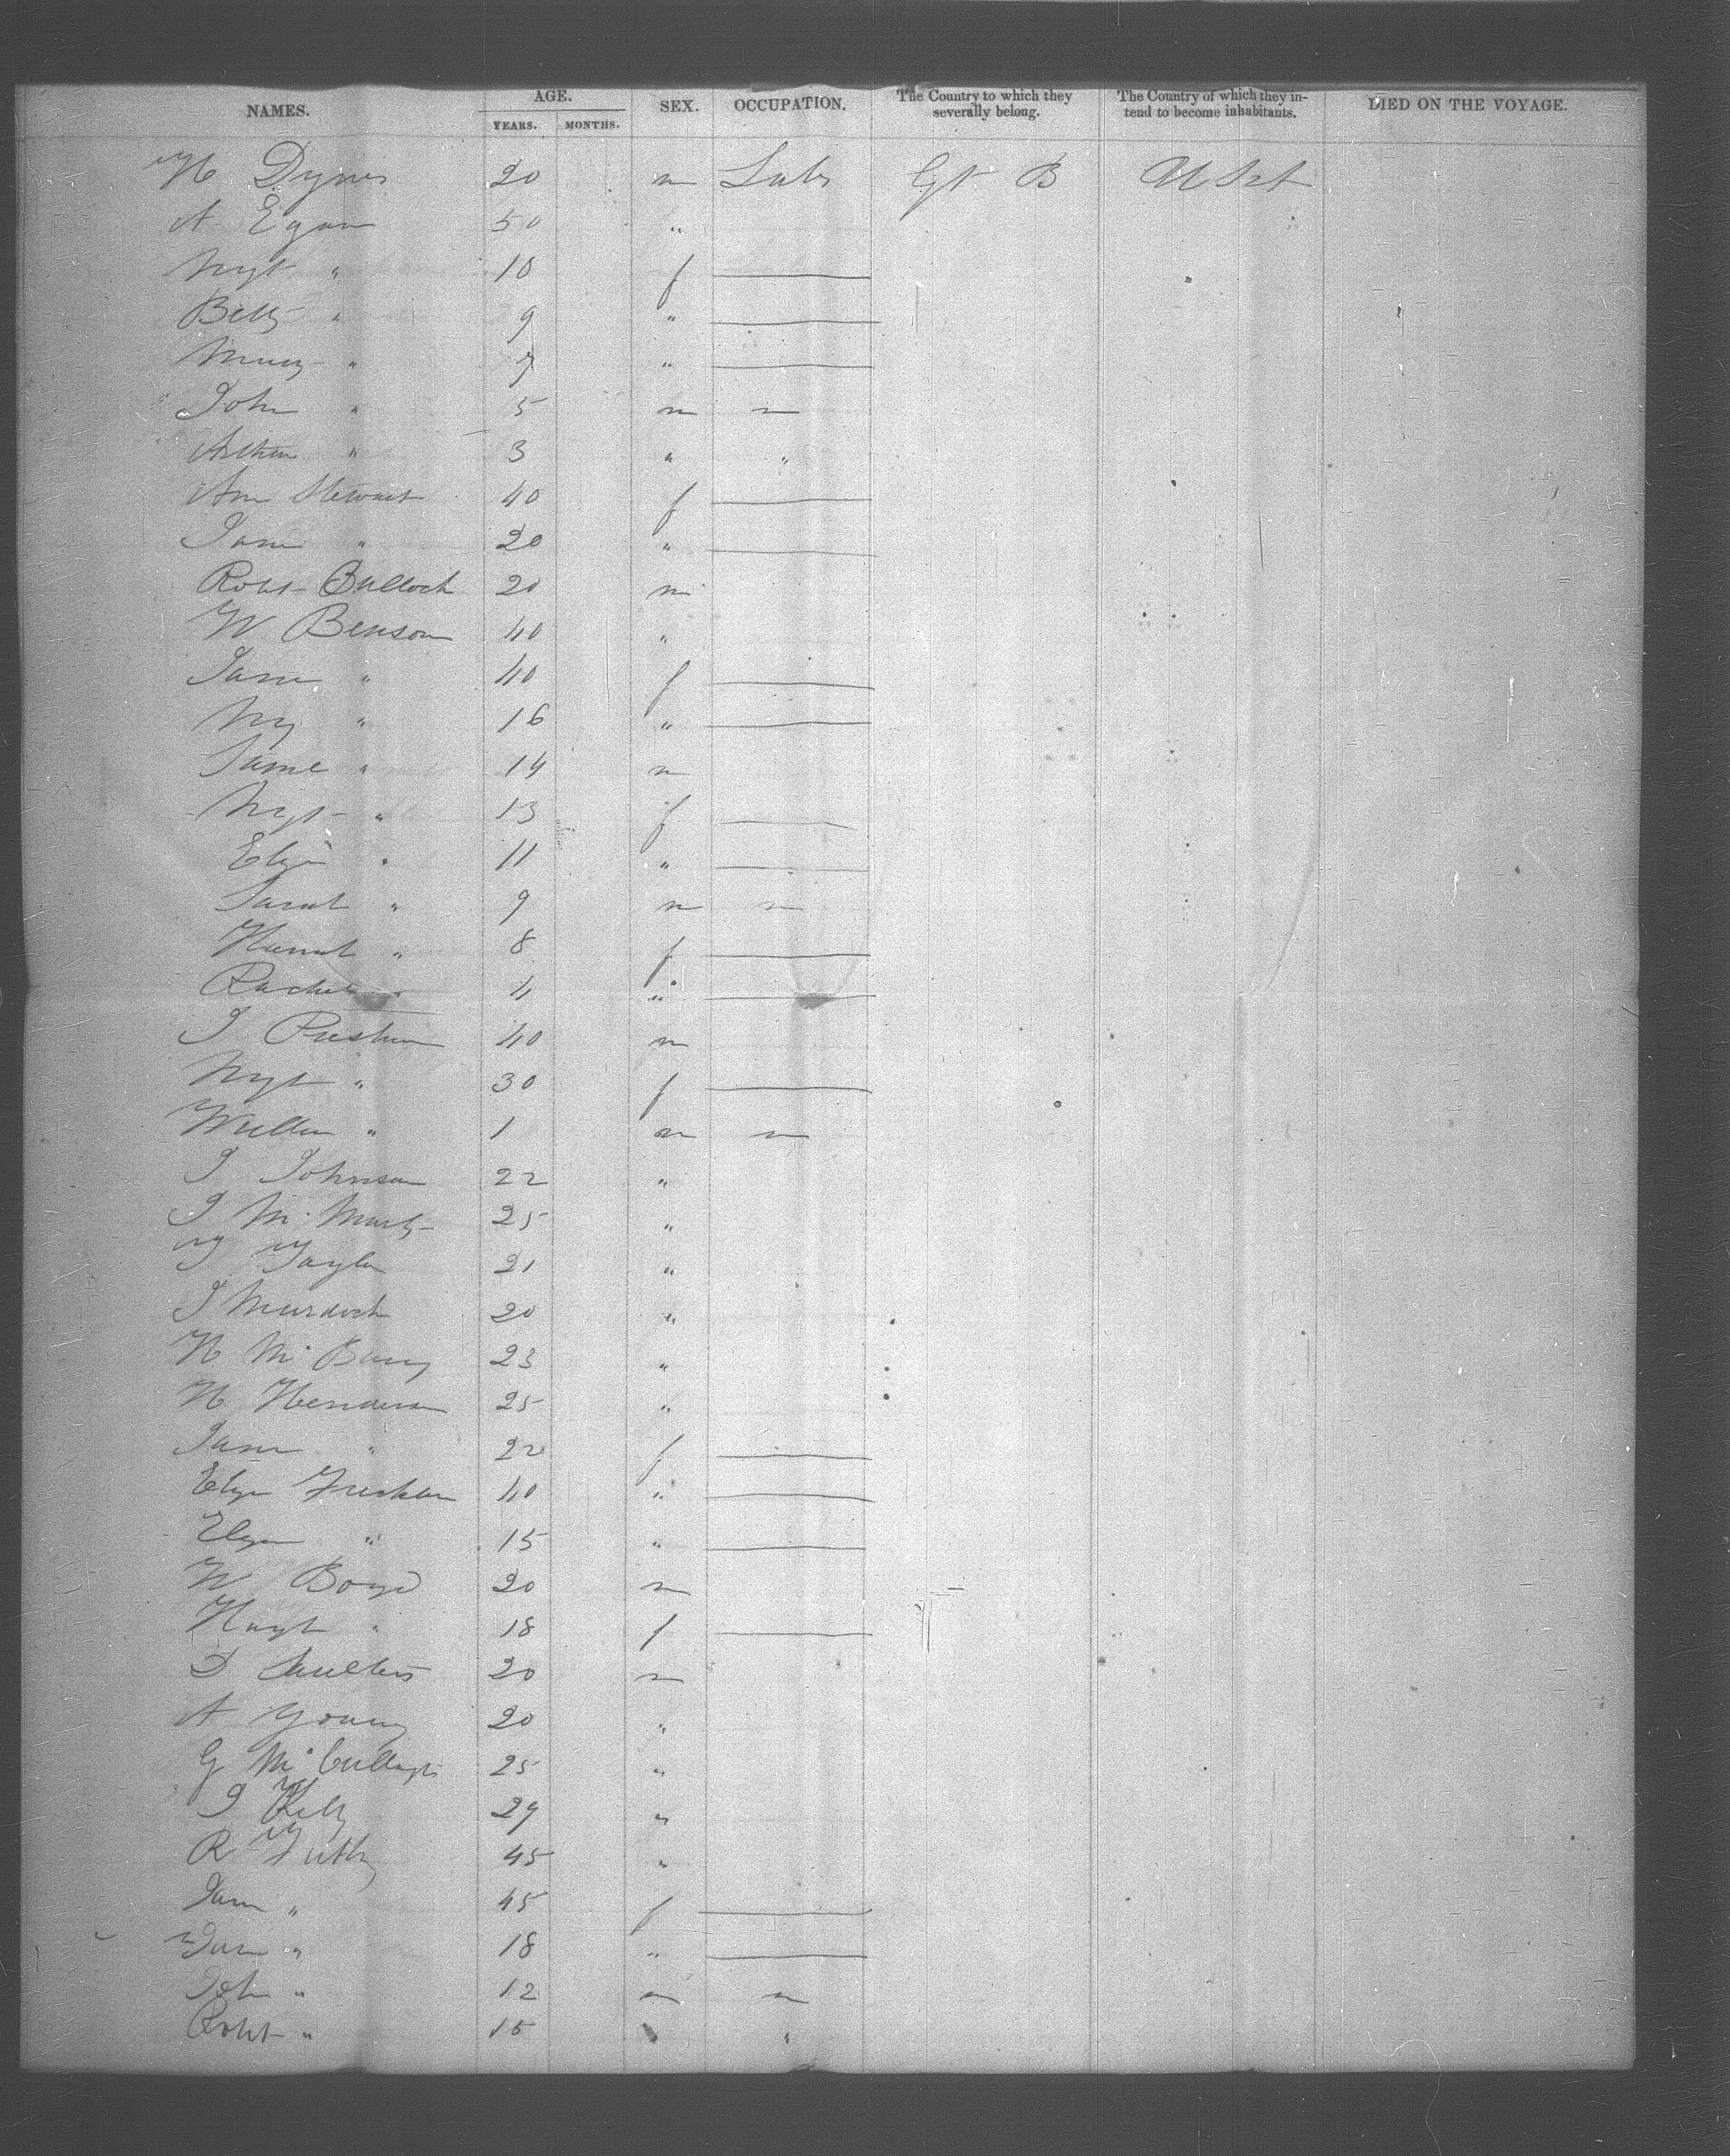 NAMES. AGE. SEX. OCCUPATION. The Country to which they severally belong. The Country of which they intend to become inhabitants. DIED ON THE VOYAGE.
YEARS. MONTHS.
H Dynes 20 m Labr Gt B U St
A Egan 50 "
Mgt " 10 f
Betty " 9 "
Mary " 7 "
John " 5 m m
Arthur " 3 " "
Ann Stewart 40 f
Jane " 20 "
Robt Bulloch 20 m
W Benson 40 "
Jane " 40 f
My " 16 "
Jame " 14 m
Mgt " 13 f
Eliza " 11 "
Sarah " 9 m m
Hannah " 8 f
Rachel " 4 "
J Preston 40 m
Mgt " 30 f
William " 1 m m
J Johnson 22 "
J Mc 25 "
T Taylor 21 "
J Murdoch 20 "
H Mc 23 "
H Henderson 25 "
Jane " 22 f
Eliza 40 "
Eliza " 15 "
W Boyd 20 m
" 18 f
D Saulters 20 m
A Young 20 "
G McCullagh 25 "
J Kelly 29 "
R 45 "
Jane " 45 f
Jane " 18 "
John " 12 m m
Robt " 15 "